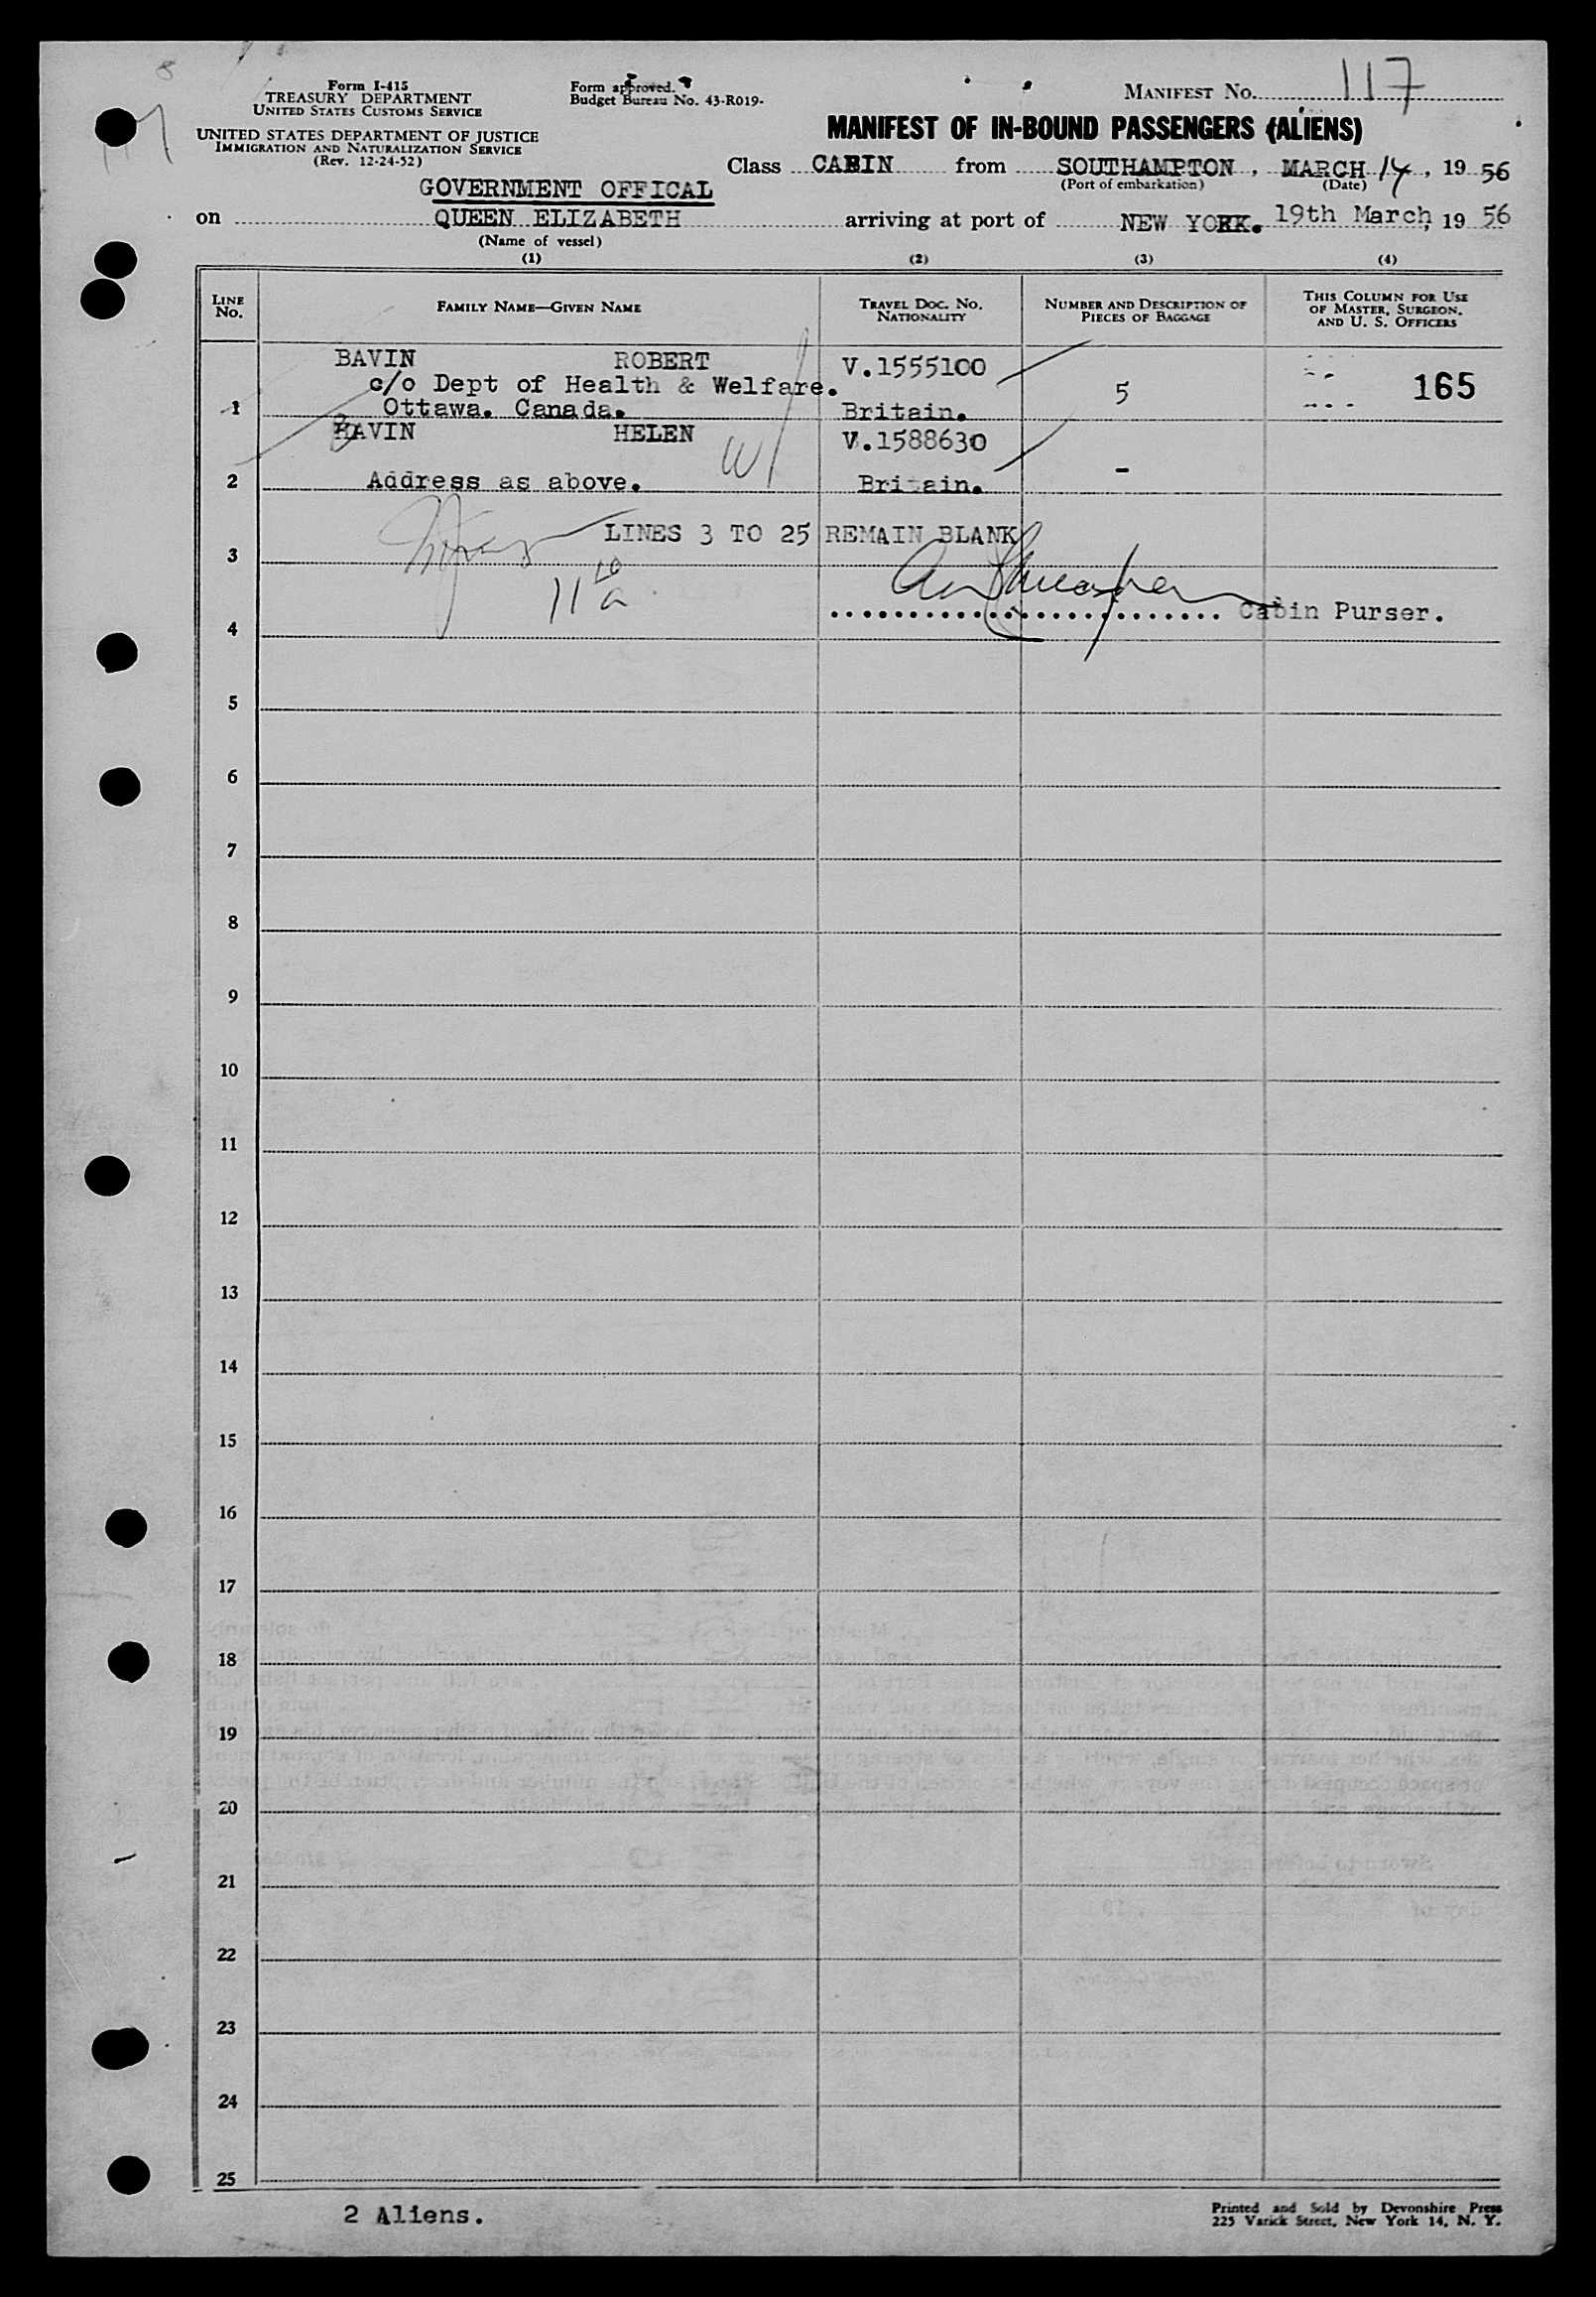 Form I-415
TREASURY DEPARTMENT
UNITED STATES CUSTOMS SERVICE
UNITED STATES DEPARTMENT OF JUSTICE
IMMIGRATION AND NATURALIZATION SERVICE
(Rev. 12-24-52)
Form approved.
Budget Bureau No. 43-R019.
MANIFEST No. 117
MANIFEST OF IN-BOUND PASSENGERS (ALIENS)
Class CABIN from SOUTHAMPTON, MARCH 14, 19 56
(Port of embarkation) (Date)
GOVERNMENT OFFICAL
on QUEEN ELIZABETH arriving at port of NEW YORK. 19th March, 19 56
(Name of vessel)
(1) (2) (3) (4)
LINE No. FAMILY NAME—GIVEN NAME TRAVEL DOC. No. NATIONALITY NUMBER AND DESCRIPTION OF PIECES OF BAGGAGE THIS COLUMN FOR USE OF MASTER, SURGEON, AND U. S. OFFICERS
BAVIN ROBERT V.1555100
c/o Dept of Health & Welfare. 5 165
1 Ottawa. Canada. Britain.
BAVIN HELEN V.1588630
W/
2 Address as above. Britain. -
LINES 3 TO 25 REMAIN BLANK
3
11 a
Cabin Purser.
4
5
6
7
8
9
10
11
12
13
14
15
16
17
18
19
20
21
22
23
24
25
2 Aliens.
Printed and Sold by Devonshire Press
225 Varick Street, New York 14, N. Y.